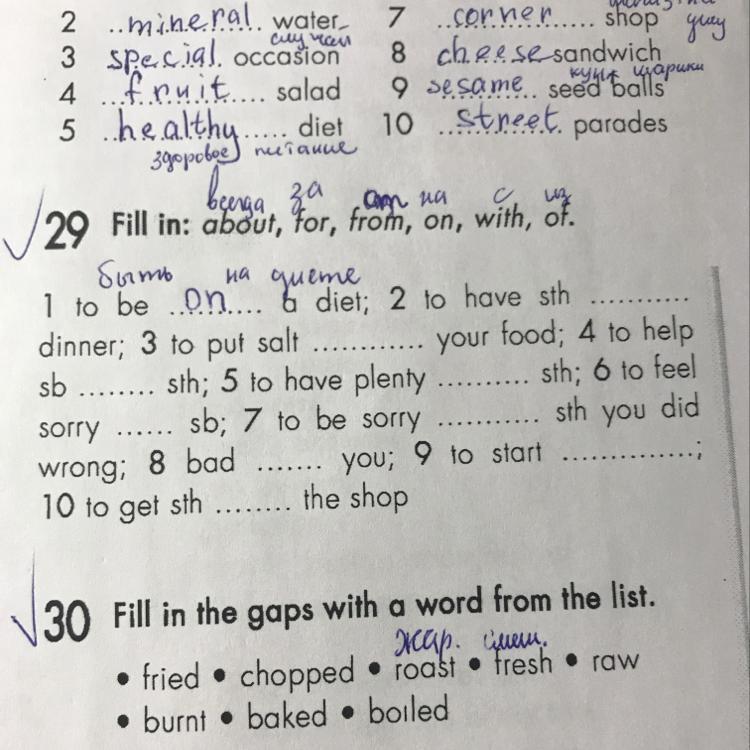 2 ..mineral. water
7 ..corner...... shop
случаи
3 special. occasion
8 cheese sandwich
4 ....fruit.... salad
9 sesame.. seed balls
5 ..healthy..... diet
10 ..street. parades
здоровое питание
за от на с из
29 Fill in: about, for, from, on, with, of.
быть на диете
1 to be ....on.... a diet; 2 to have sth ...........
dinner; 3 to put salt ............ your food; 4 to help
sb ........ sth; 5 to have plenty .......... sth; 6 to feel
sorry ...... sb; 7 to be sorry ........... sth you did
wrong; 8 bad ....... you; 9 to start ..............;
10 to get sth ........ the shop
30 Fill in the gaps with a word from the list.
жар.
• fried • chopped • roast • fresh • raw
• burnt • baked • boiled